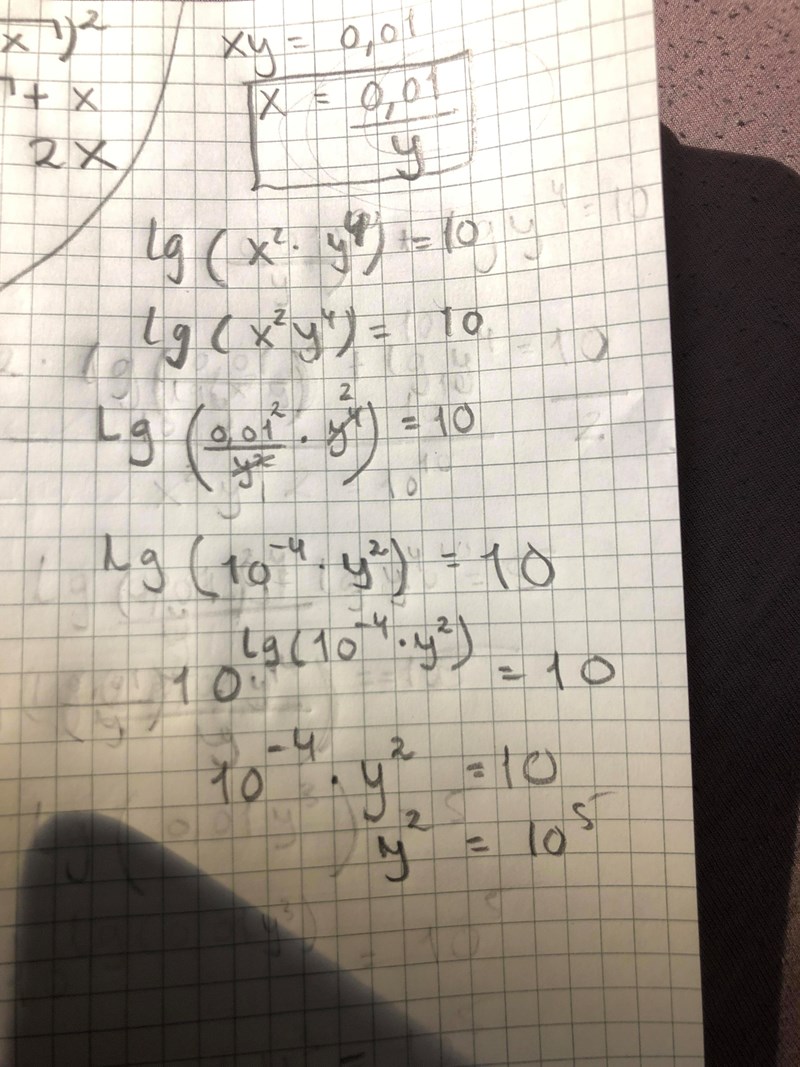 x)²
+ x
2x
xy = 0,01
x = 0,01/y
lg (x² · y⁴) = 10
lg (x²y⁴) = 10
Lg (0,01²/y² · y⁴ ²) = 10
Lg (10⁻⁴ · y²) = 10
10^lg(10⁻⁴ · y²) = 10
10⁻⁴ · y² = 10
y² = 10⁵